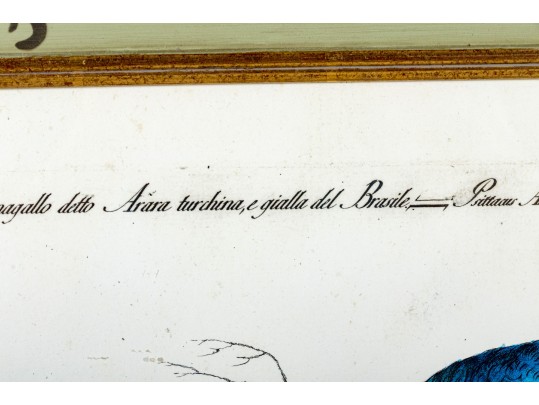 pagallo detto Arara turchina, e gialla del Brasile, = Psittacus A